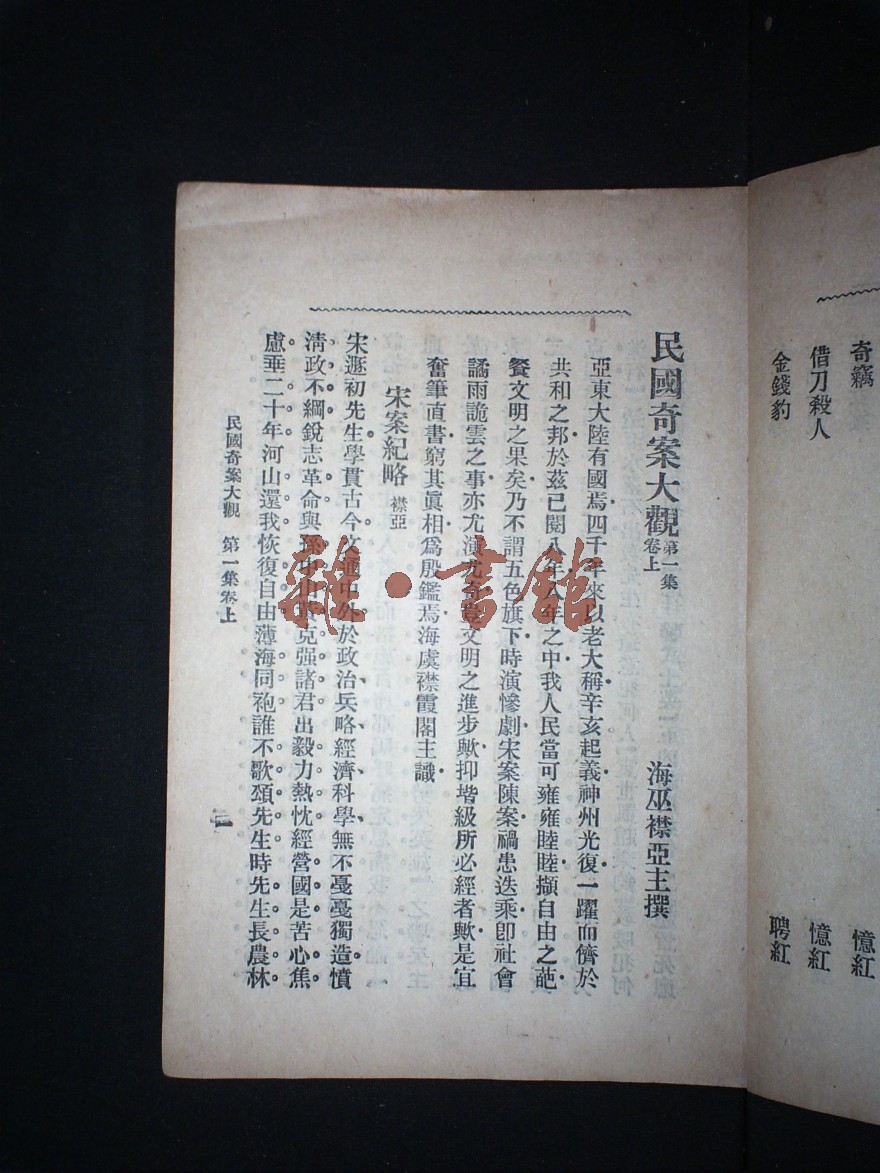 奇竊 憶紅
借刀殺人 憶紅
金錢豹 聘紅
民國奇案大觀 第一集卷上
海巫襟亞主撰
亞東大陸有國焉四千年來以老大稱辛亥起義神州光復一躍而儕於
共和之邦於茲已閱八年八年之中我人民當可雍雍睦睦擷自由之葩
餐文明之果矣乃不謂五色旗下時演慘劇宋案陳案禍患迭乘卽社會
譎雨詭雲之事亦尤演尤奇豈文明之進步歟抑堦級所必經者歟是宜
奮筆直書窮其眞相爲殷鑑焉海虞襟霞閣主識
宋案紀略 襟亞
宋遯初先生學貫古今文通中外於政治兵略經濟科學無不戛戛獨造憤
淸政不綱銳志革命與孫中山黃克强諸君出毅力熱忱經營國是苦心焦
慮垂二十年河山還我恢復自由薄海同袍誰不歌頌先生時先生長農林
民國奇案大觀 第一集卷上
一
雜·書館